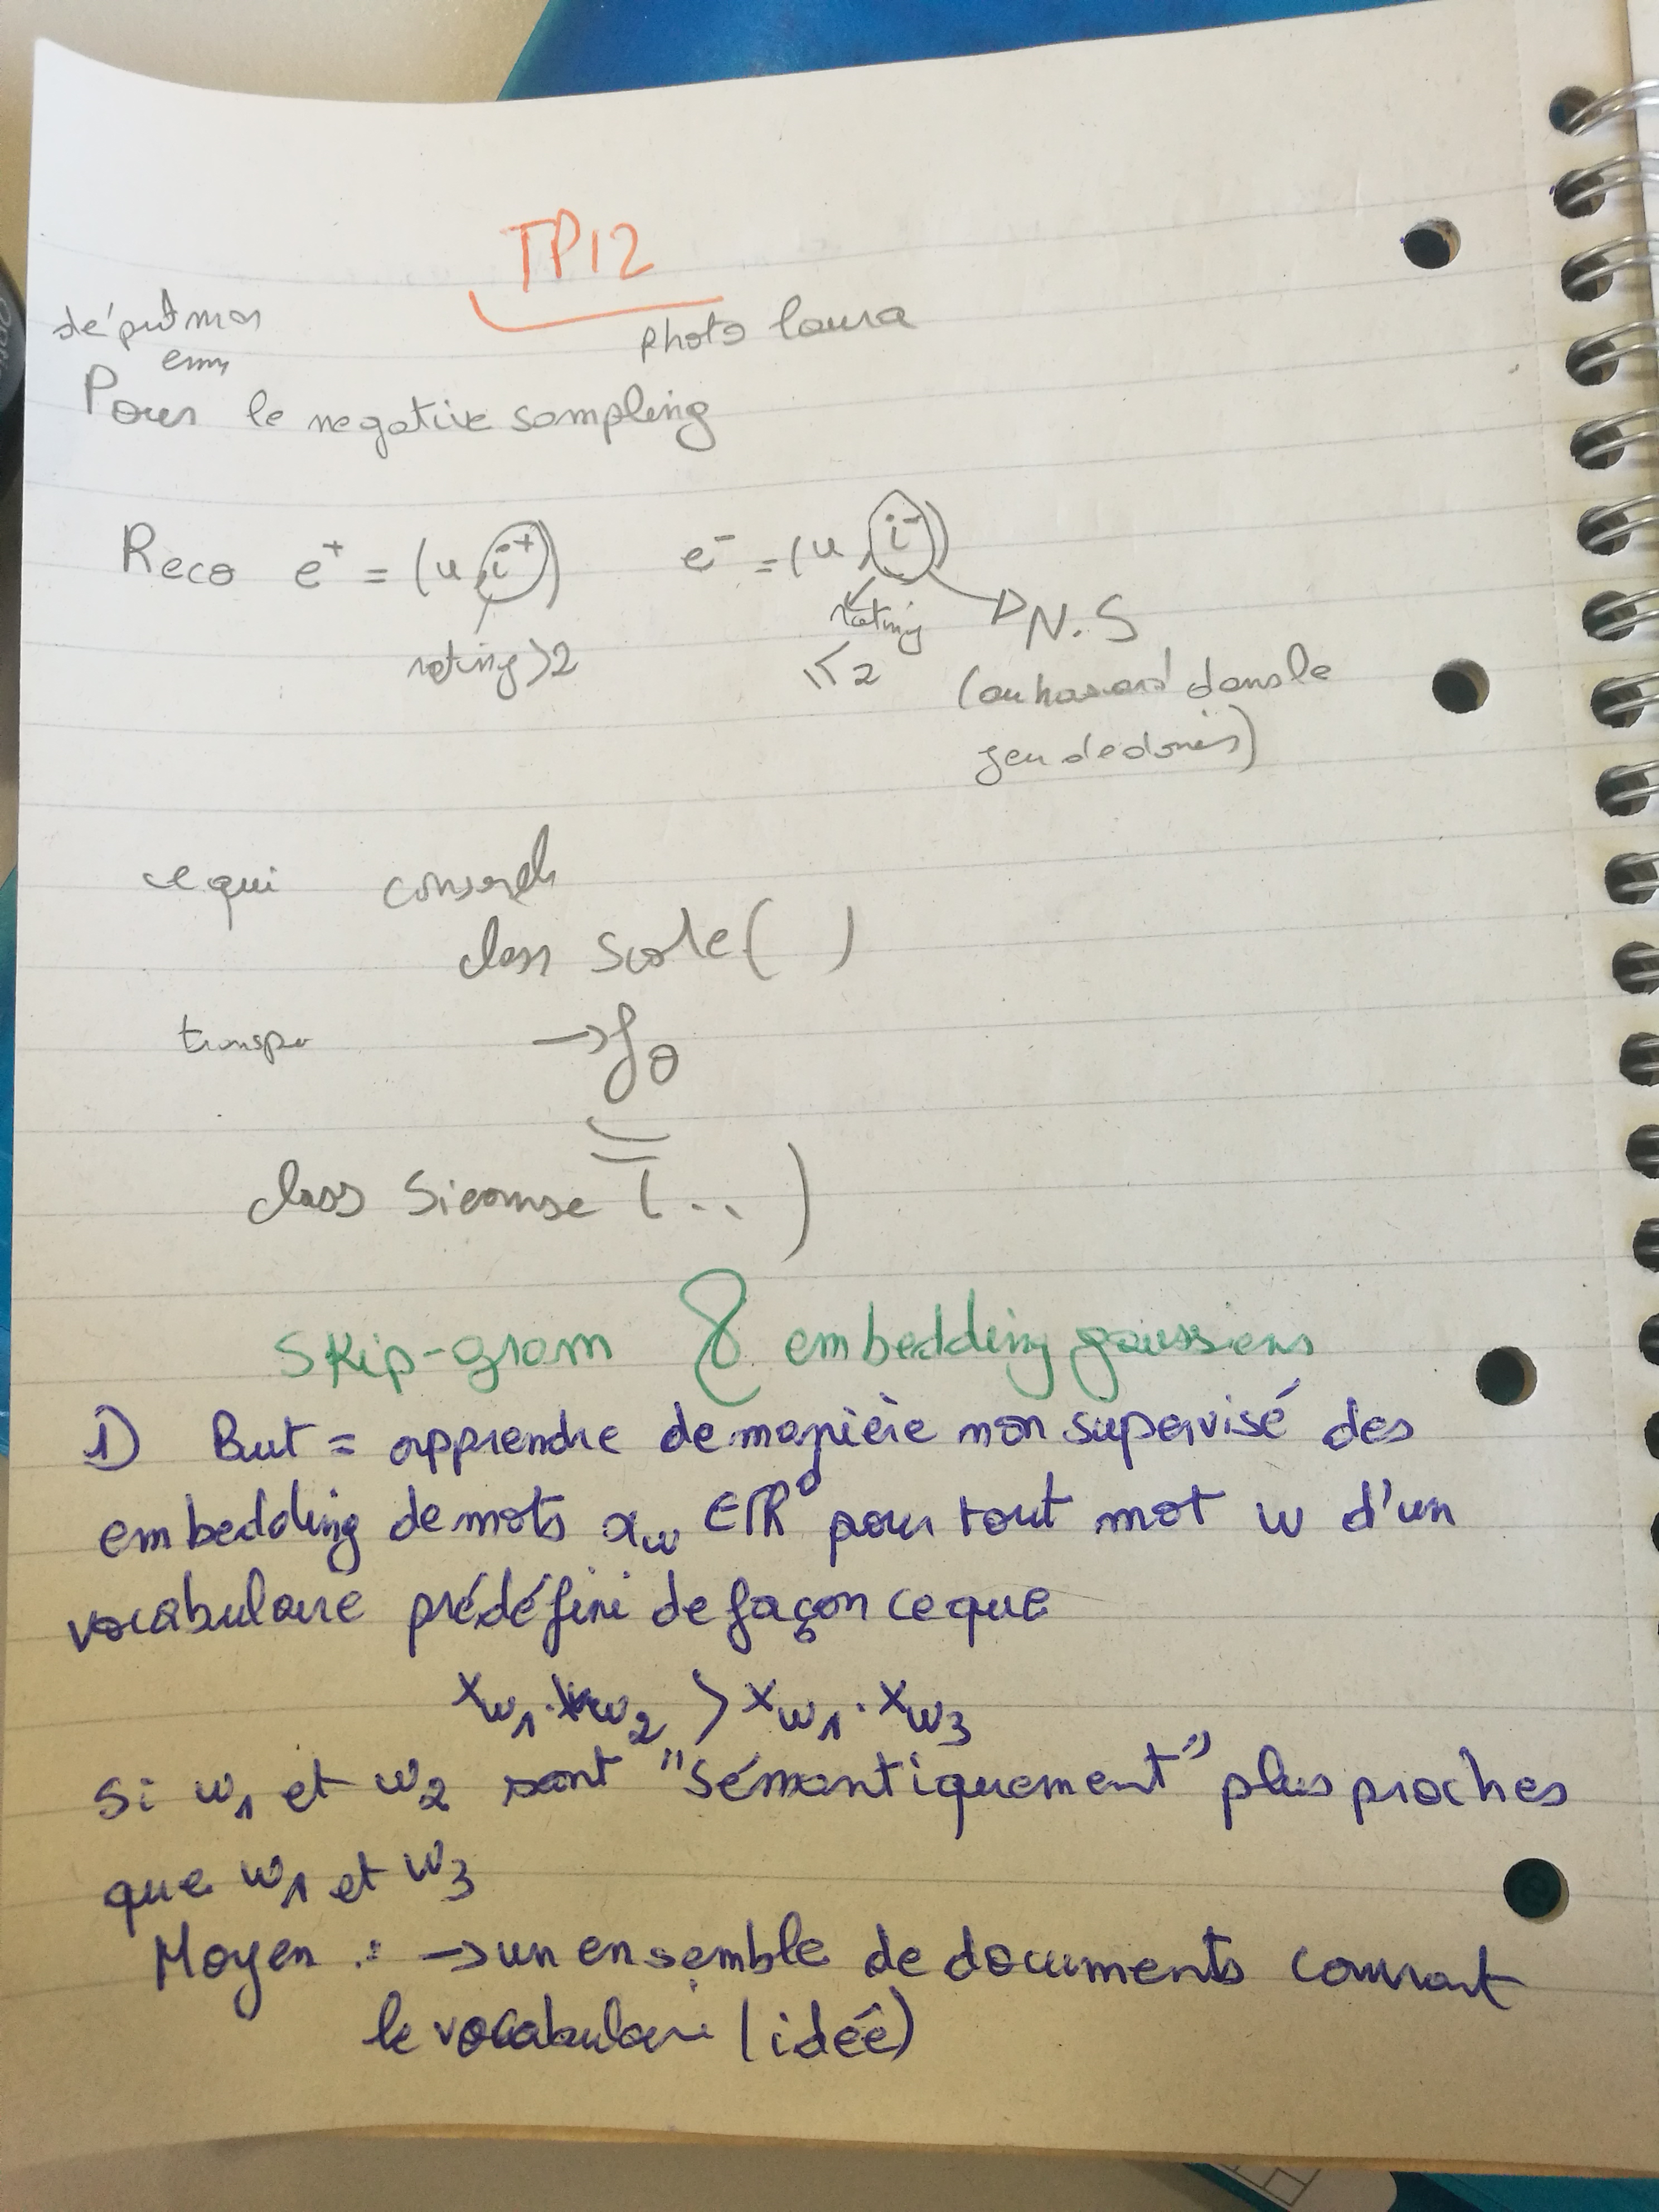 TP12
photo laura
Pour le negative sampling
Reco e⁺ = (u, i⁺) e⁻ = (u, i⁻)
rating > 2 rating ≤ 2 N.S
(au hasard dans le
jeu de donnés)
ce qui
class score( )
→ fθ
class Siamese (..)
Skip-gram & embedding gaussiens
1) But = apprendre de manière non supervisé des
embedding de mots x_w ∈ ℝᵈ pour tout mot w d'un
vocabulaire prédéfini de façon ce que
x_w₁ . x_w₂ > x_w₁ . x_w₃
si w₁ et w₂ sont "sémantiquement" plus proches
que w₁ et w₃
Moyen : → un ensemble de documents couvrant
le vocabulaire (idée)